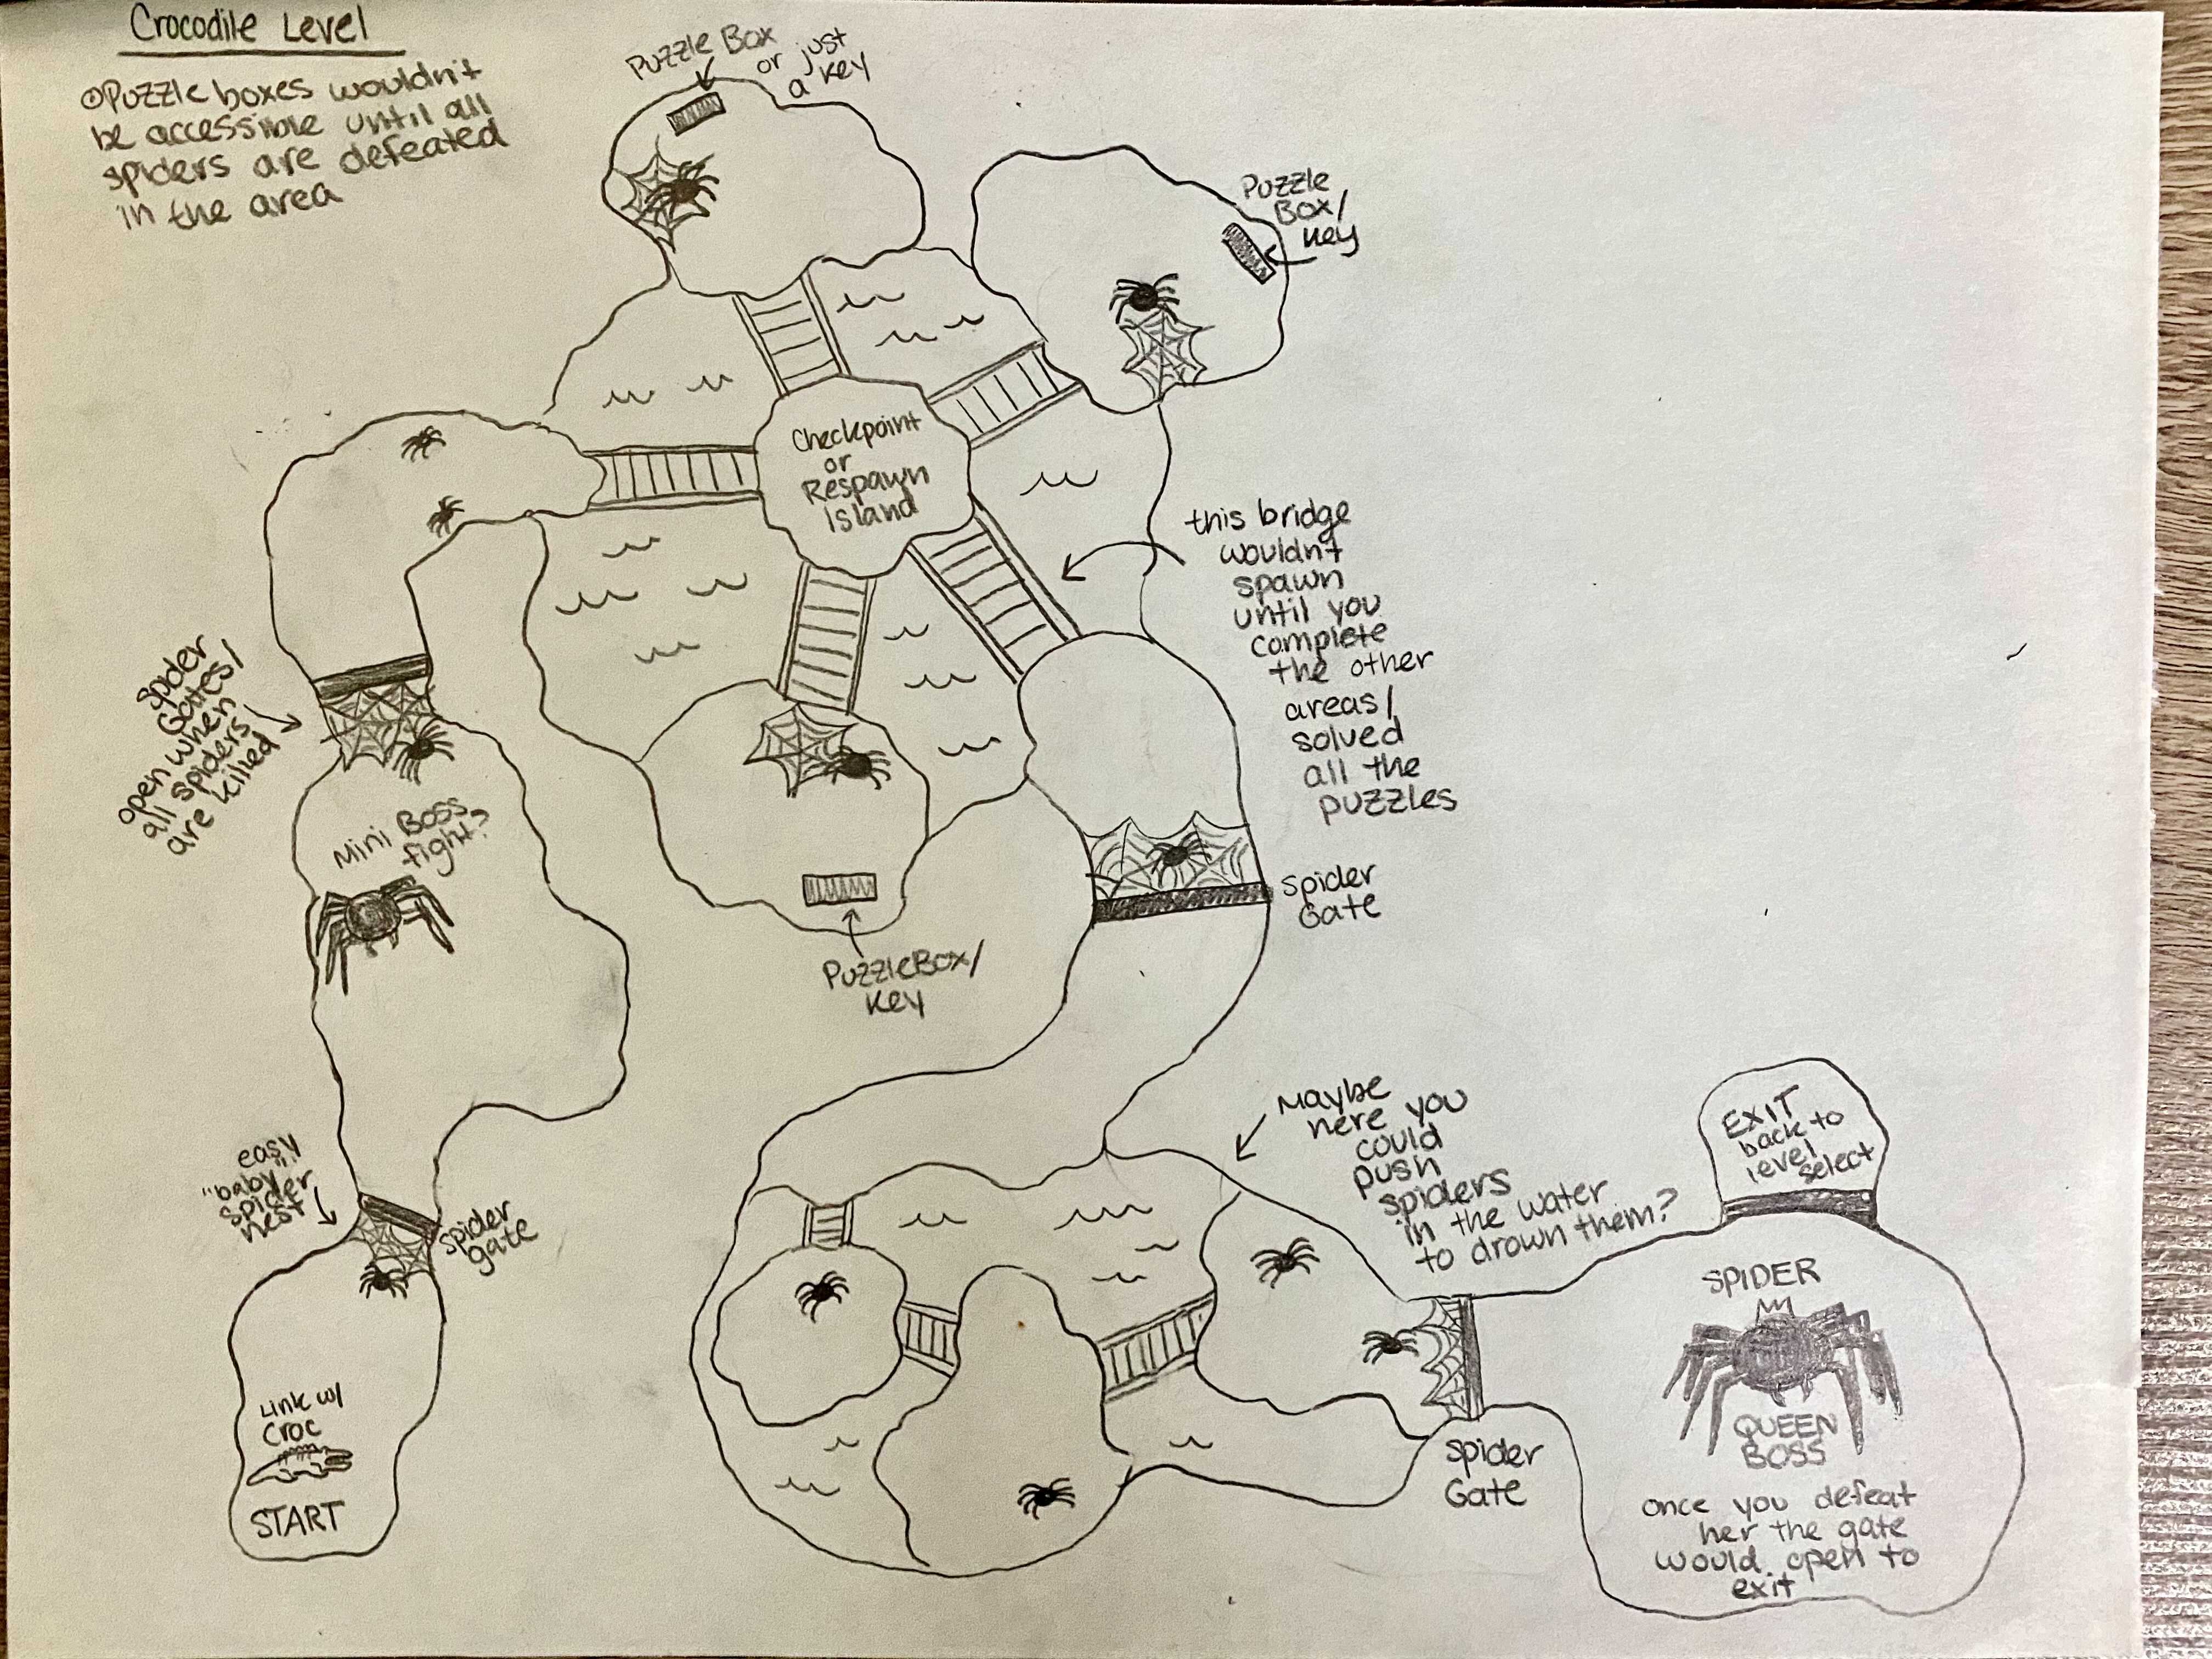 Crocodile Level
Puzzle boxes wouldn't
be accessible until all
spiders are defeated
in the area
Puzzle Box
or just
a key
Puzzle
Box/
key
Checkpoint
or
Respawn
Island
this bridge
wouldn't
spawn
until you
complete
the other
areas/
solved
all the
puzzles
spider
Gates/
open when
all spiders
are killed
Mini Boss
fight?
spider
Gate
Puzzle Box/
key
easy
"baby"
spider
nest
spider
gate
Link w/
Croc
START
Maybe
here you
could
push
spiders
in the water
to drown them?
EXIT
back to
level
select
SPIDER
QUEEN
BOSS
once you defeat
her the gate
would open to
exit
Spider
Gate